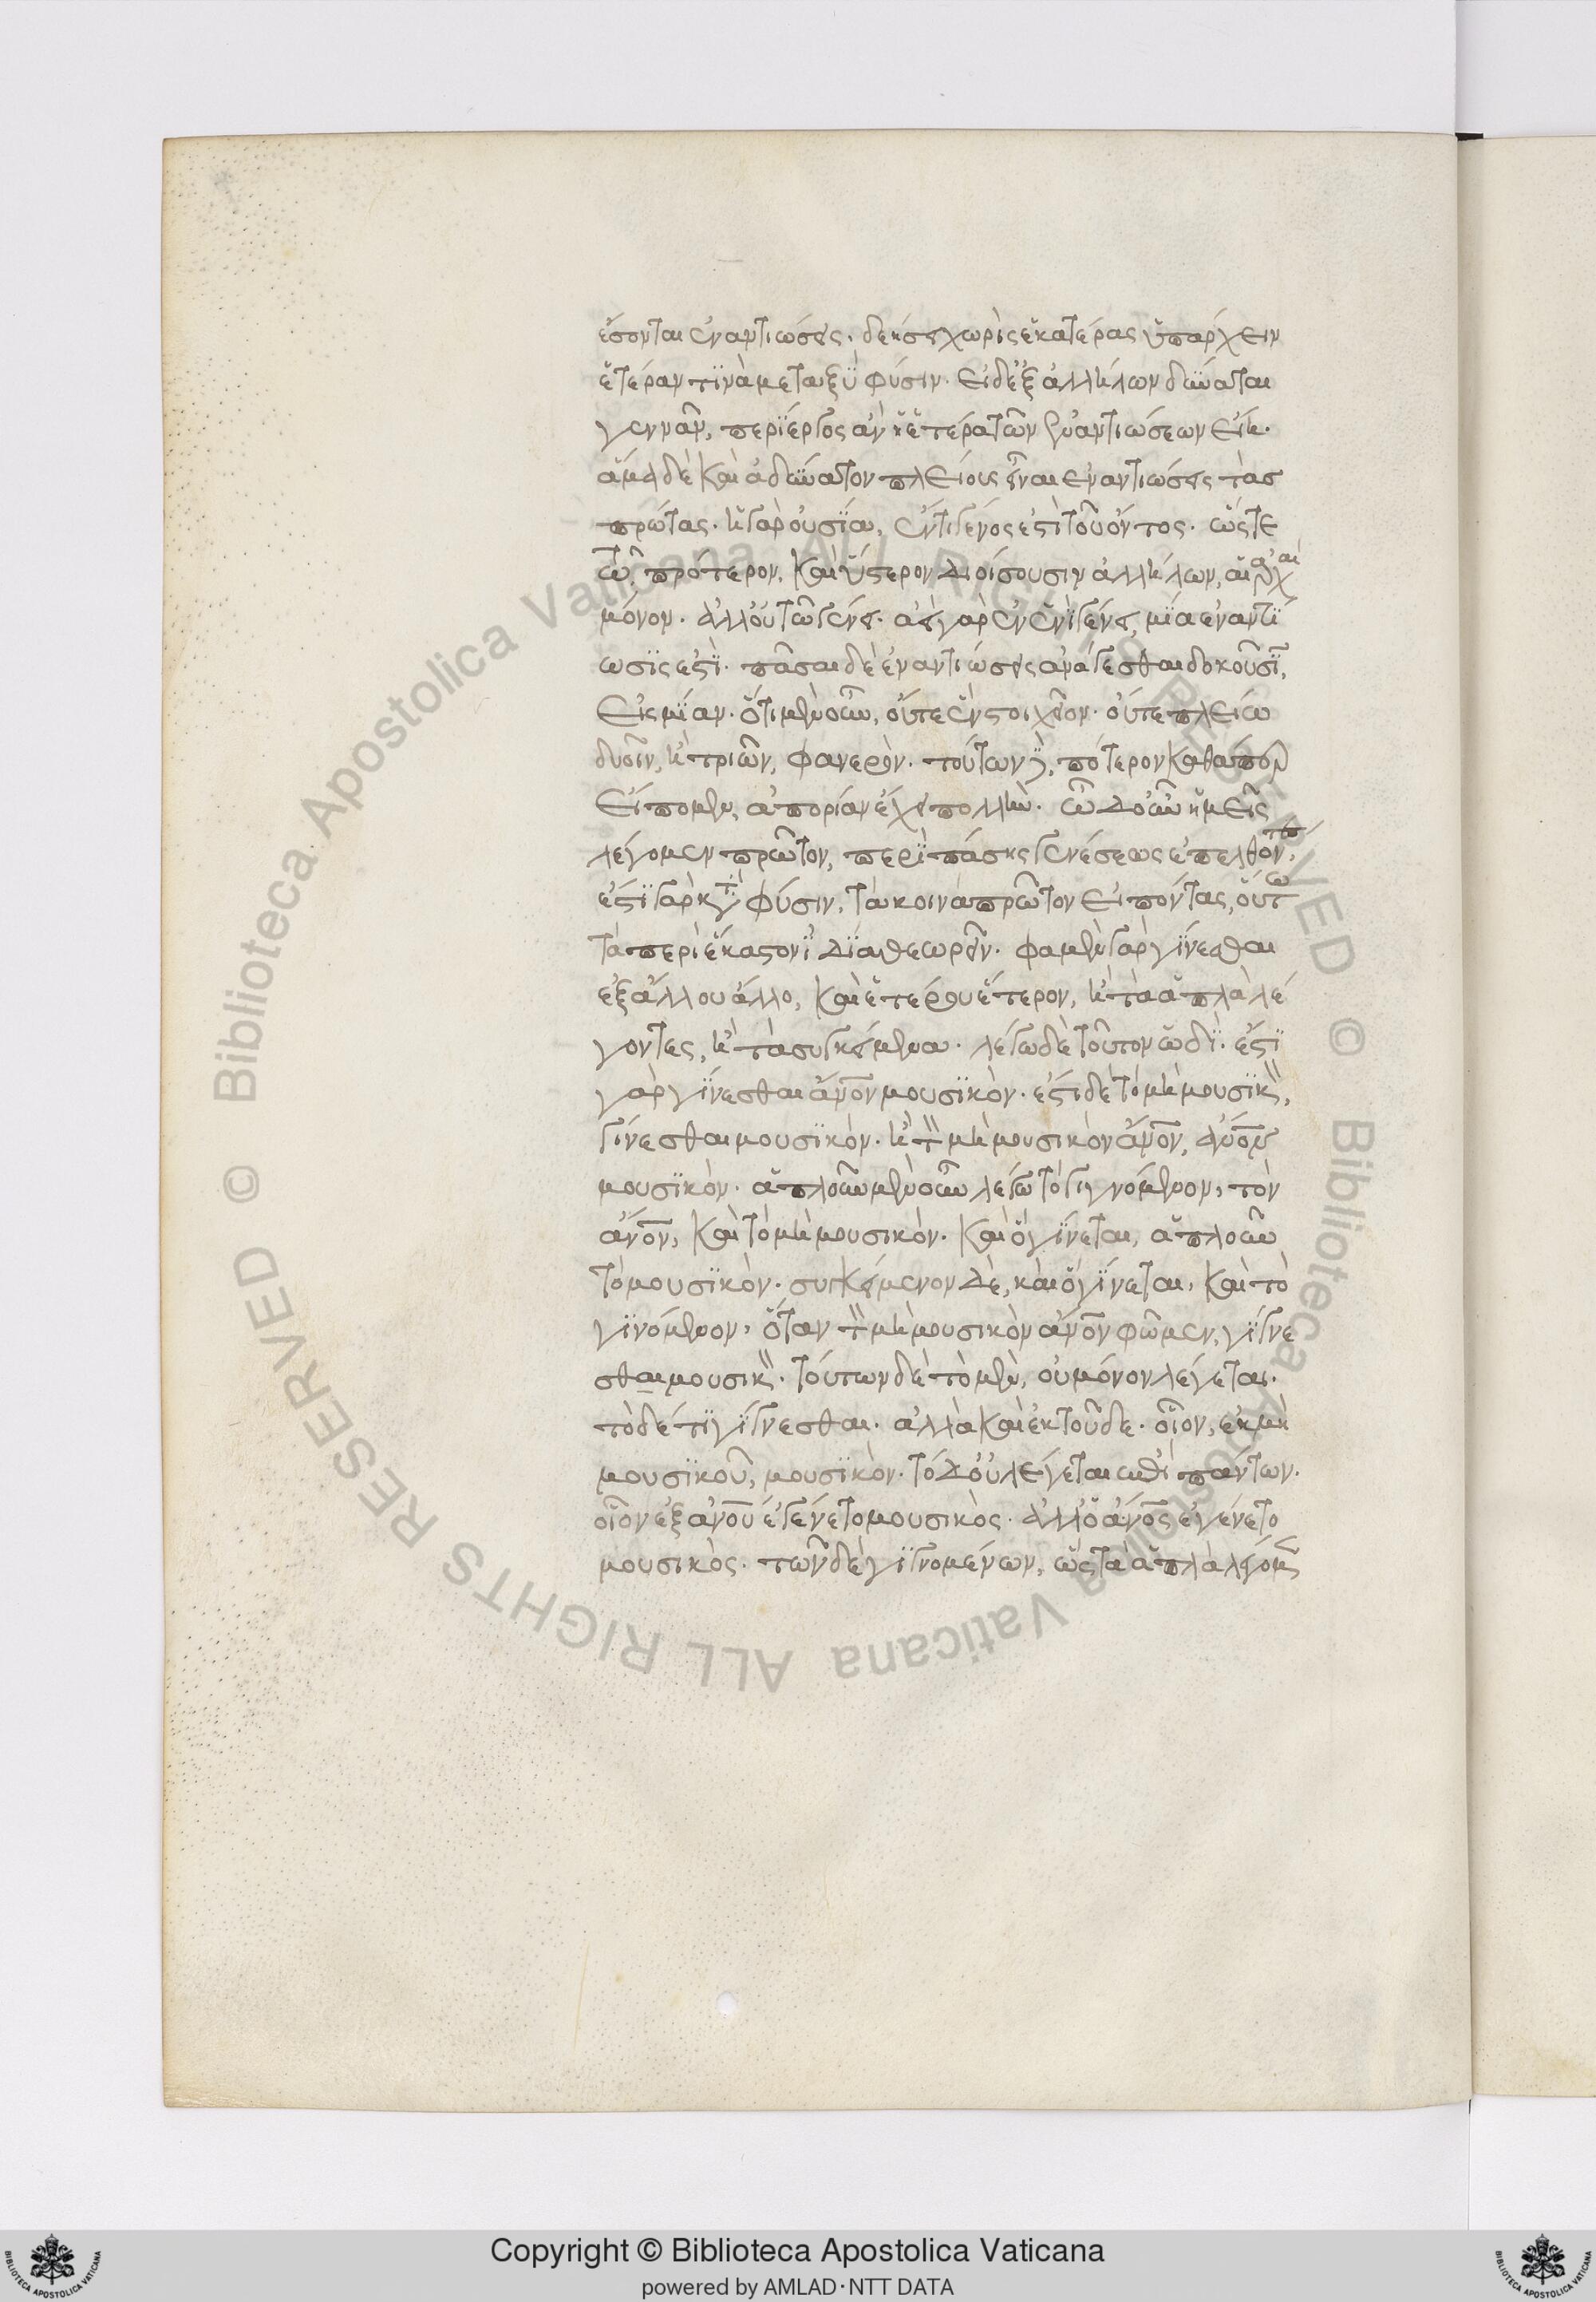 ἔσονται ἐναντιώσεις. δεήσει χωρὶς ἑκατέρας ὑπάρχειν
ἑτέραν τϊνὰ μεταξὺ φύσιν. εἰ δ' ἐξ ἀλλήλων δύνανται
γεννᾶν, περίεργος ἂν ἡ ἑτέρα τῶν ἐναντιώσεων εἴη.
ἅμα δὲ καὶ ἀδύνατον πλείους εἶναι ἐναντιώσεις τὰσ
πρώτας. ἡ γὰρ οὐσία, ἕν τι γένος ἐστὶ τοῦ ὄντος. ὥστε
τῶ, πρότερον, καὶ ὕστερον διοίσουσιν ἀλλήλων, αἱ ἀρχαὶ
μόνον. ἀλλ' οὐ τῶ γένει. ἀεὶ γὰρ ἐν ἑνὶ γένει, μία ἐναντϊ
ωσϊς ἐστϊ. πᾶσαι δὲ ἐναντιώσεις ἀνάγεσθαι δοκοῦσϊ,
εἰς μίαν. ὅτι μὲν οὖν, οὔτε ἓν στοιχεῖον. οὔτε πλείω
δυοῖν, ἢ τριῶν, φανερόν. τούτων δὲ, πότερον καθάπερ
εἴπομεν, ἀπορίαν ἔχει πολλήν. ὧδ' οὖν ἡμεῖς
λέγομεν πρῶτον, περὶ πάσης γενέσεως ἐπελθόντ.
ἔστϊ γὰρ κτ̀ φύσιν, τὰ κοινὰ πρῶτον εἰπόντας, οὕτω
τὰ περὶ ἕκαστον ἴδϊα θεωρεῖν. φαμὲν γὰρ γίνεσθαι
ἐξ ἄλλου ἄλλο, καὶ ἑτέρου ἕτερον, ἢ τὰ ἁπλᾶ λέ
γοντες, ἢ τὰ συγκείμενα. λέγω δὲ τοῦτον ὡδϊ. ἔστϊ
γὰρ γίνεσθαι ἄνον μουσϊκὸν. ἔστι δὲ τὸ μὴ μουσϊκ,
γίνεσθαι μουσϊκὸν. ἢ τ μὴ μουσικὸν ἄνον, ἄνον
μουσϊκὸν. ἁπλοῦν μὲν οὖν λέγω τὸ γιγνόμενον, τὸν
ἄνον, καὶ τὸ μὴ μουσικὸν. καὶ ὃ γίνεται, ἁπλοῦν
τὸ μουσϊκὸν. συγκείμενον δὲ, καὶ ὃ γίνεται, καὶ τὸ
γϊνόμενον, ὅταν τ μὴ μουσικὸν ἄνον φῶμεν, γίγνε
σθαι μουσικ. τούτων δὲ τὸ μὲν, οὐ μόνον λέγεται.
τὸ δέ τϊ γίγνεσθαι. ἀλλὰ καὶ ἐκ τοῦδε. οἷον, ἐκ μὴ
μουσϊκοῦ, μουσϊκὸν. τὸ δ' οὐ λέγεται ἐπὶ πάντων.
οἷον ἐξ ἀνου ἐγένετο μουσικὸς. ἀλλ' ὁ ἄνος ἐγένετο
μουσικὸς. τῶν δὲ γϊγνομένων, ὡς τὰ ἁπλᾶ λέγομεν